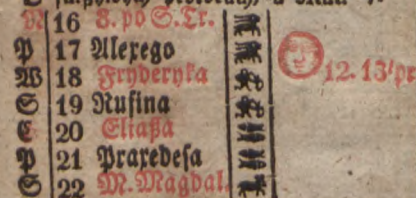 N 16 8. po S. Tr.
P 17 Alexego
W 18 Fryderyka 12. 13'pr
S 19 Rufina
C 20 Eliaßa
P 21 Praxedesa
S 22 M. Magdal.